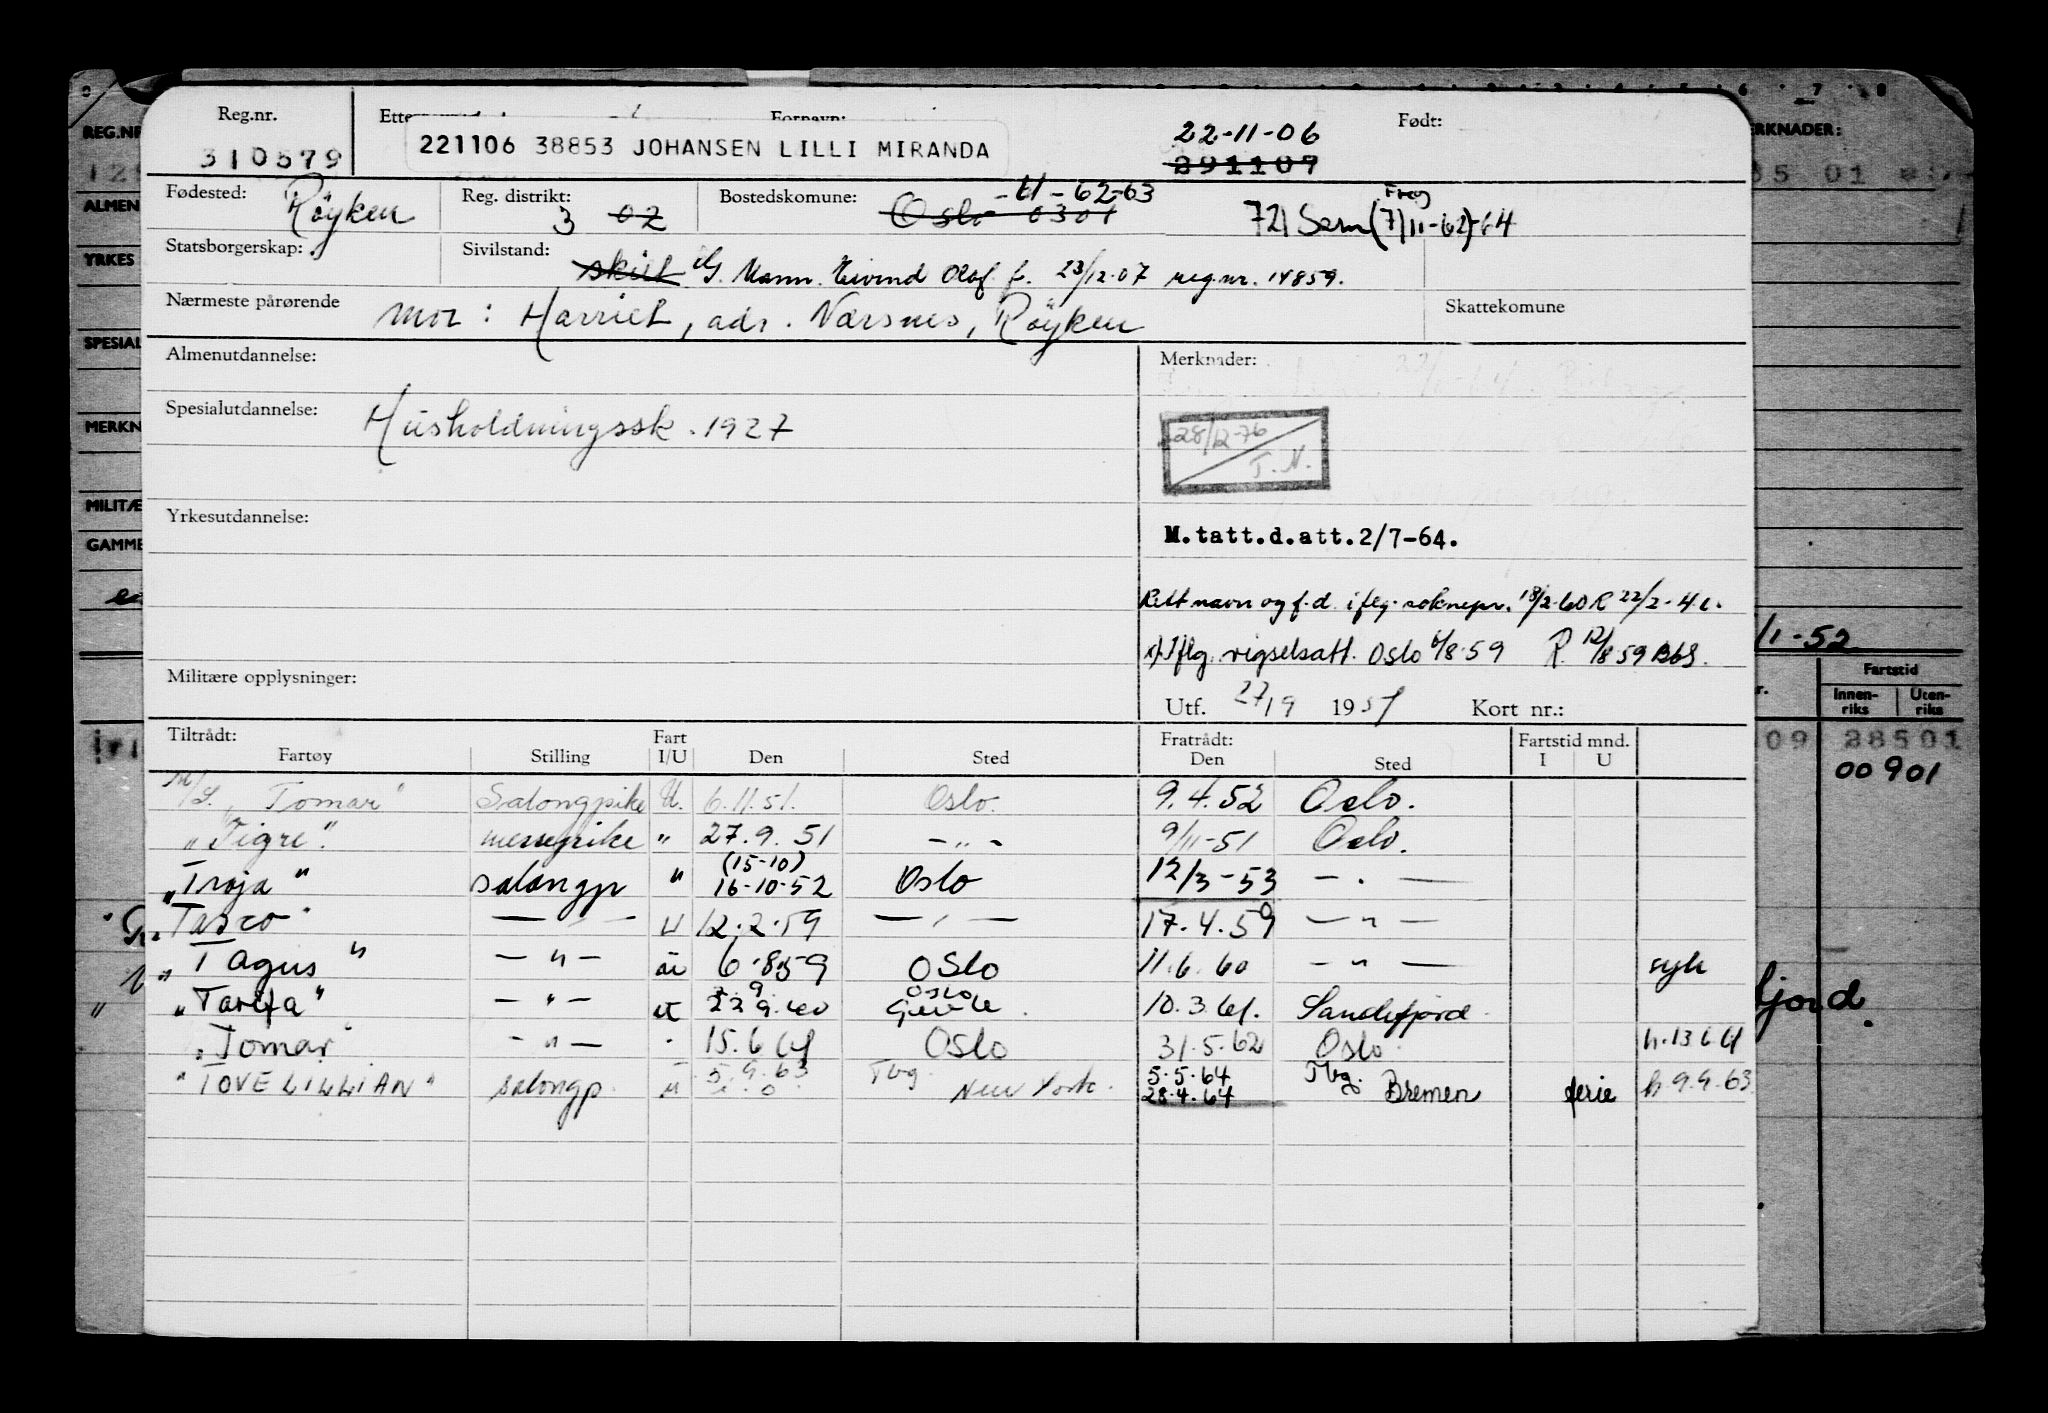 Reg.nr. Fornavn: Født:
310579 221106 38853 JOHANSEN LILLI MIRANDA 22-11-06
291107
Fødested: Røyken Reg. distrikt: 3 02 Bostedskomune: Oslo 0301 - tl - 62-63
721 Sem (7/11-62)-64
Statsborgerskap: Sivilstand: skilt G. Mann. Eivind Olaf f. 23/12-07 reg.nr. 14859.
Nærmeste pårørende Mor: Harriet, adr. Nærsnes, Røyken Skattekomune
Almenutdannelse: Merknader:
Spesialutdannelse: Husholdningssk. 1927
28/12-76
T. N.
Yrkesutdannelse:
M.tatt.d.att.2/7-64.
Rett navn og f.d. iflg. soknepr. 18/2-60 R 22/2-
x) Iflg. vigselsatt. Oslo 6/8-59 R. 12/8 59
Militære opplysninger:
Utf. 27/9 1951 Kort nr.:
Tiltrådt: Fratrådt: Fartstid mnd.
Fartøy Stilling Fart I/U Den Sted Den Sted I U
M/S. "Tomar" Salongpike U. 6.11.51. Oslo. 9.4.52 Oslo.
"Tigre". messepike " 27.9.51 - " - 9/11-51 Oslo.
"Troja" salongp " (15-10) 16-10-52 Oslo 12/3-53 - " -
"Tasco" - " - U 12.2.59 - " - 17.4.59 - " -
"Tagus" - " - u 6.8.59 OSlo 11.6.60 - " - syk
"Tarifa" - " - u 9.60 Oslo 10.3.61. Sandefjord
"Tomar" - " - " 15.6 61 OSlo 31.5.62 Oslo h.13 6 61
"TOVE LILLIAN" salongp. u 5.9.63 Tbg. New York. 5.5.64 28.4.64 Tbg. Bremen ferie h.9.9.63
REG.NR
ALMEN
YRKES
SPESIAL
MERKN
MILITÆ
GAMME
ERKNADER:
/1-52
Fartstid
Innen-riks Uten-riks
09 28501
00901
fjord.